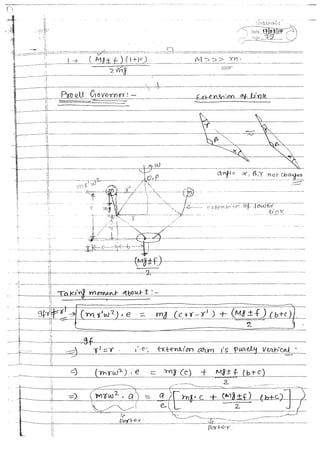 1 + (Mg ± f)(1+k)   M >>> m.
2mg
Proell Governor:-   Extension of link
angle α, β, γ not changes
ω
O, P
mr'ω²
r'
m
extension of lower link
c
r
I
(Mg±f)
2
Taking moment about I :-
If r≠r' → (mr'ω²).e = mg (c+r-r') + (Mg ± f)/2 (b+c)
If
⇒ r'=r . i.e; extension arm is purely vertical
⇒ (mrω²).e = mg (c) + Mg±f/2 (b+c)
⇒ (mrω².a) = a/e [mg.c + (Mg±f)/2 (b+c)]
Porter   Porter